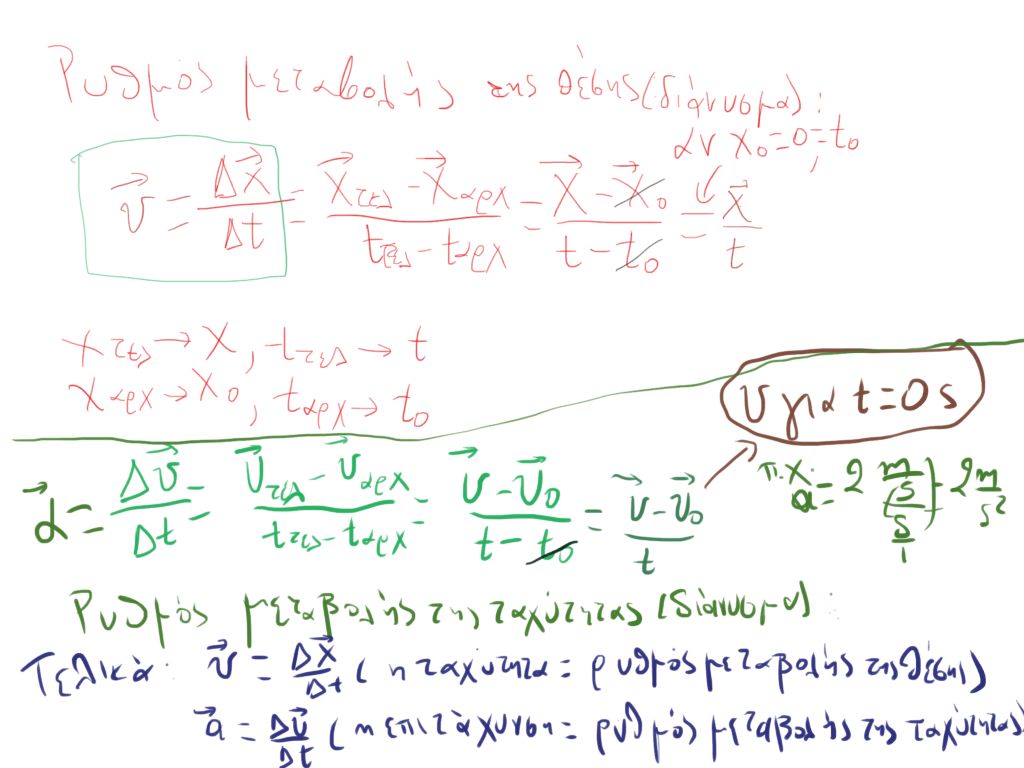 Ρυθμός μεταβολής της θέσης (διάνυσμα):
αν x₀=0=t₀
v⃗ = Δx⃗/Δt = (x⃗τελ - x⃗αρχ)/(tτελ - tαρχ) = (x⃗ - x⃗₀)/(t - t₀) = x⃗/t
xτελ → x, tτελ → t
xαρχ → x₀, tαρχ → t₀
v για t=0s
α⃗ = Δv⃗/Δt = (v⃗τελ - v⃗αρχ)/(tτελ - tαρχ) = (v⃗ - v⃗₀)/(t - t₀) = (v⃗ - v⃗₀)/t
π.χ.
a = 2 (m/s)/(s/1) } 2 m/s²
Ρυθμός μεταβολής της ταχύτητας (διάνυσμα):
Τελικά: v⃗ = Δx⃗/Δt (η ταχύτητα = ρυθμός μεταβολής της θέσης)
a⃗ = Δv⃗/Δt (η επιτάχυνση = ρυθμός μεταβολής της ταχύτητας)